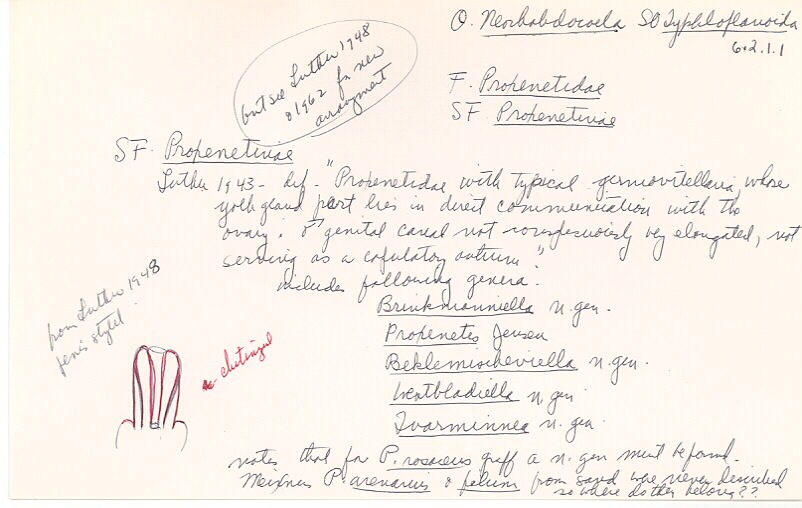 O. Neorhabdocoela SO Typhloplanoida
6.2.1.1
but see Luther 1948
& 1962 for new
arrangement
F. Propenetidae
SF Propenetinae
SF. Propenetinae
Luther 1943 - def - "Propenetidae with typical germovitellaria, whose
yolk gland part lies in direct communication with the
ovary. ♂ genital canal not conspicuously elongated, not
serving as a copulatory antrum".
includes following genera:
Brinkmanniella n. gen.
Propenetes Jensen
Beklemischeviella n. gen.
Westbladiella n. gen
Tvarminnea n. gen.
from Luther 1948
penis stylet
chitinized
notes that for P. rosaceus Graff a n. gen must be found.
Meixner P. arenarius & from sand were never described
so where do they belong??